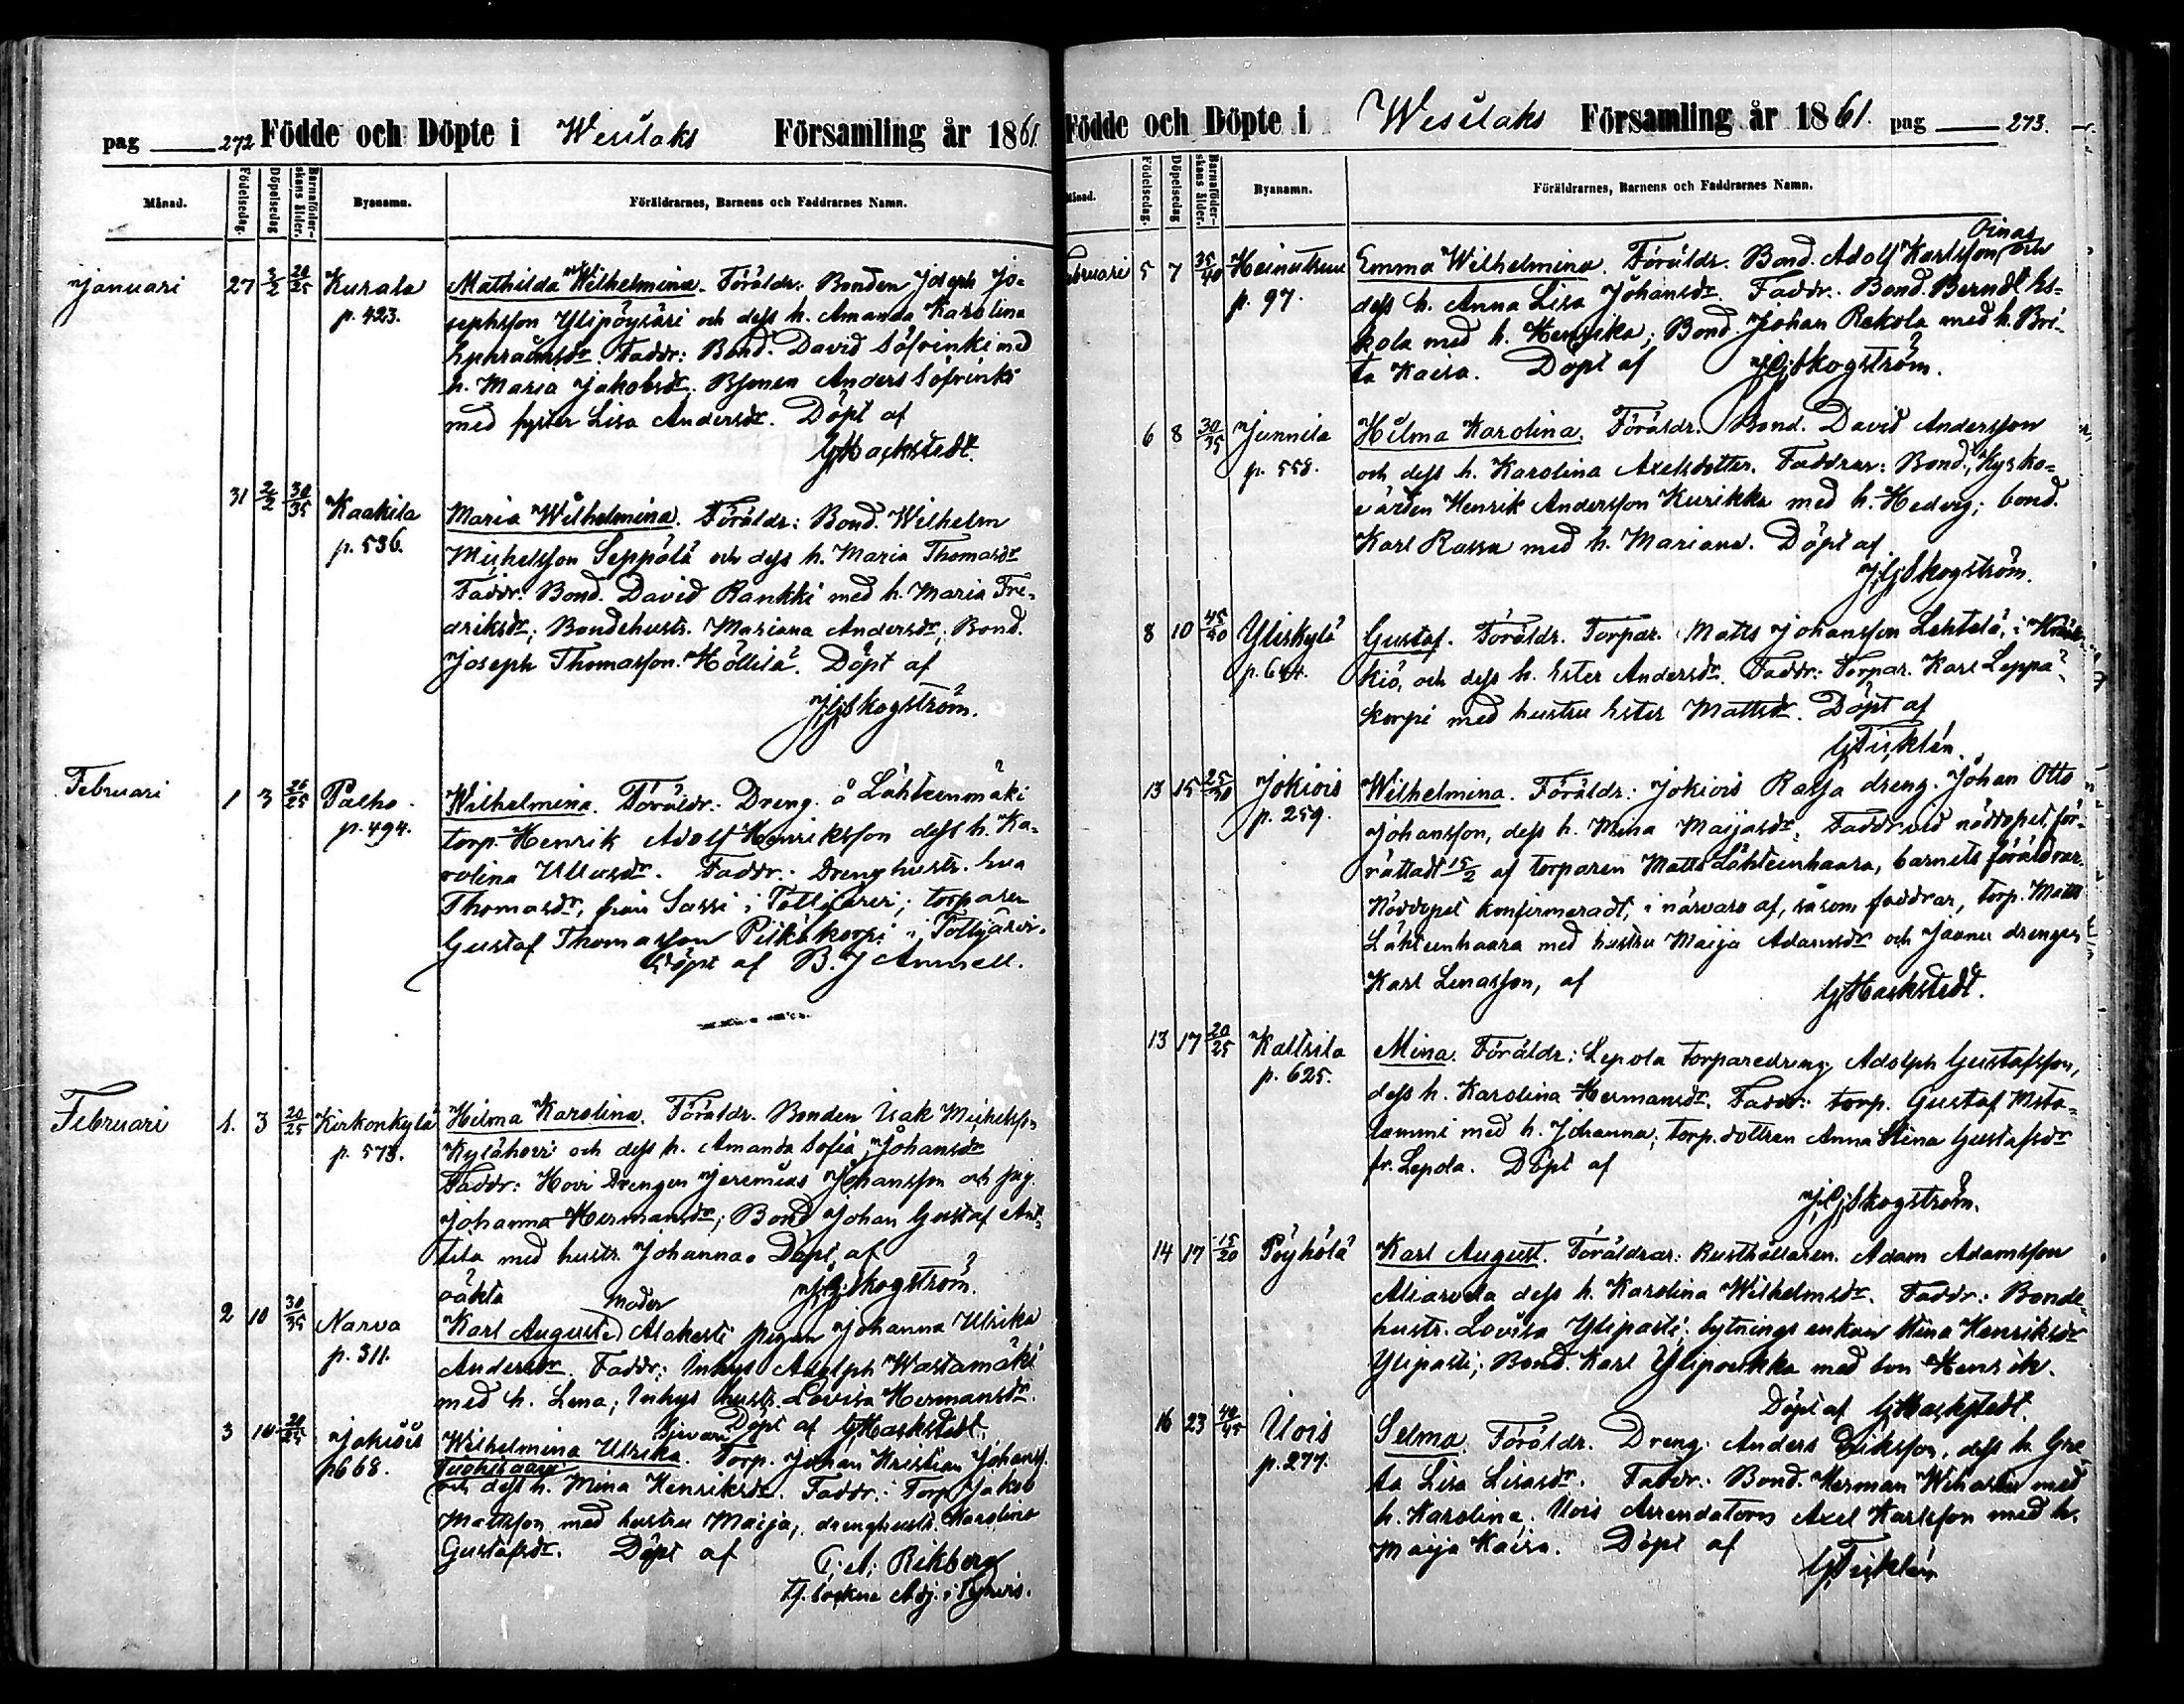 pag 272 Födde och Döpte i Wesilaks Församling år 1861.
Månad. Födelsedag. Döpelsedag Barnaföderskans ålder. Byanamn. Föräldrarnes, Barnens och Faddrarnes Namn.
Januari 27 3/2 20/25 Kurala Mathilda Wilhelmina. Föräldr: Bonden Joseph Jo-
p. 423. sephsson Ylipöysäri och dess h. Amanda Karolina
Ephraimsdr. Faddr: Bond. David Söfrinki med
h. Maria Jakobsdr. Bsonen Anders Söfrinki
med syster Lisa Andersdr. Döpt af
G Hackstedt.
31 2/2 30/35 Kaakila Maria Wilhelmina. Föräldr: Bond. Wilhelm
p. 536. Michelsson Seppälä och dess h. Maria Thomasdr
Faddr. Bond. David Rankki med h. Maria Fre-
driksdr; Bondehustr. Mariana Andersdr; Bond.
Joseph Thomasson Höllilä. Döpt af
J G Skogström.
Februari 1 3 Palho. Wilhelmina. Föräldr: Dreng. å Lähteenmäki
p. 494. torp Henrik Adolf Henriksson dess h. Ka-
rolina Ullasdr. Faddr: Drenghustr. Eva
Thomasdr, från Sassi i Tottijärvi; torparen
Gustaf Thomasson Pitkäkorpi i Tottijärvi.
Döpt af B. J Annell.
Februari 1. 3 20/25 Kirkonkylä Hilma Karolina. Föräldr. Bonden Isak Michelsson
p. 573. Kylähovi och dess h. Amanda Sofia Johansdr
Faddr: Hovi Drengen Jeremias Johansson och pig.
Johanna Hermansdr; Bond Johan Gustaf Ant-
tila med hustr. Johanna. Döpt af
J G Skogström.
oäkta Moder
2 10 30/35 Narva Karl August Alakesti pigan Johanna Ulrika
p. 311. Andersdr. Faddr: Inhys Adolph Wastamäki
med h. Lena; Inhys hustr. Lovisa Hermansdr.
Döpt af G Hackstedt.
3 10 20/25 Jokiois Wilhelmina Ulrika. Torp. Johan Kristian Johanss.
p 668. och dess h. Mina Henriksdr. Faddr: Torp Jakob
Mattsson med hustru Maija, drenghustr. Karolina
Gustafsdr. Döpt af C. A. Rikberg
Tj. Sockne Adj. i Tyrvis.
Födde och Döpte i Wesilaks Församling år 1861. pag 273.
Månad. Födelsedag. Döpelsedag Barnaföderskans ålder. Byanamn. Föräldrarnes, Barnens och Faddrarnes Namn.
Oinas
Februari 5 7 35/40 Heinisuu Emma Wilhelmina. Föräldr. Bond. Adolf Karlsson och
p. 97. dess h. Anna Lisa Johansdr. Faddr. Bond. Berndt Es-
kola med h. Henrika; Bond. Johan Rekola med h. Bri-
ta Kaisa. Döpt af J G Skogström.
6 8 30/35 Junnila Hilma Karolina. Föräldr. Bond. David Andersson
p. 558. och dess h. Karolina Axelsdotter. Faddrar: Bond., Kyrko-
värden Henrik Andersson Kurikka med h. Hedvig; bond.
Karl Rassu med h. Mariana. Döpt af
J G Skogström.
8 10 45/50 Yliskylä Gustaf. Föräldr. Torpar. Matts Johansson Lehtelä, i
p. 644. kiö, och dess h. Ester Andersdr. Faddr: Torpar. Karl Leppä-
korpi med hustru Ester Mattsdr. Döpt af
G Ticklén.
13 15 25/30 Jokiois Wilhelmina. Föräldr: Jokiois Rasja dreng. Johan Otto
p. 259. Johansson, dess h. Mina Maijasdr. Faddr. vid nöddopet, för-
rättadt 15/2 af torparen Matts Lähteenhaara, barnets föräldrar.
Nöddopet konfirmeradt, i närvaro af, såsom faddrar, torp. Matts
Lähteenhaara med hustru Maija Adamsdr och Jaanu drengen
Karl Lenasson, af G Hackstedt.
13 17 20/25 Kaltsila Mina. Föräldr: Lepola torparedreng. Adolph Gustafsson,
p. 625. dess h. Karolina Hermansdr. Faddr: torp. Gustaf Msta-
lammi med h. Johanna; torp. dottren Anna Stina Gustafsdr
fr. Lepola. Döpt af
J G Skogström.
14 17 15/20 Pöyhölä Karl August. Föräldrar: Rusthållaren. Adam Adamsson
Aliarvela dess h. Karolina Wilhelmsdr. Faddr: Bonde-
hustr. Lovisa Ylipasti; sytnings enkan Stina Henriksdr
Ylipasti; Bond. Karl Ylipoukka med son Henrik.
Döpt af G Hackstedt.
16 23 40/45 Uois Selma. Föräldr. Dreng. Anders Eriksson, dess h. Gre-
p. 277. ta Lisa Lisasdr. Faddr: Bond. Herman Wihastu med
h. Karolina. Uois Arrendatorn Axel Karlsson med h.
Maija Kaisa. Döpt af
G Ticklén